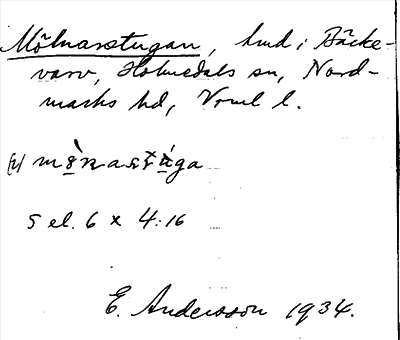 Mölnarstugan, hmd i Bäcke-
varv, Holmedals sn, Nord-
marks hd, Vrml l.
5 el. 6 x 4:16
E. Andersson 1934.